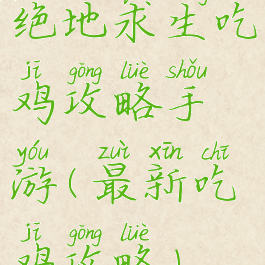 绝地求生吃
jī gōng lüè shǒu
鸡攻略手
yóu zuì xīn chī
游(最新吃
jī gōng lüè
鸡攻略)